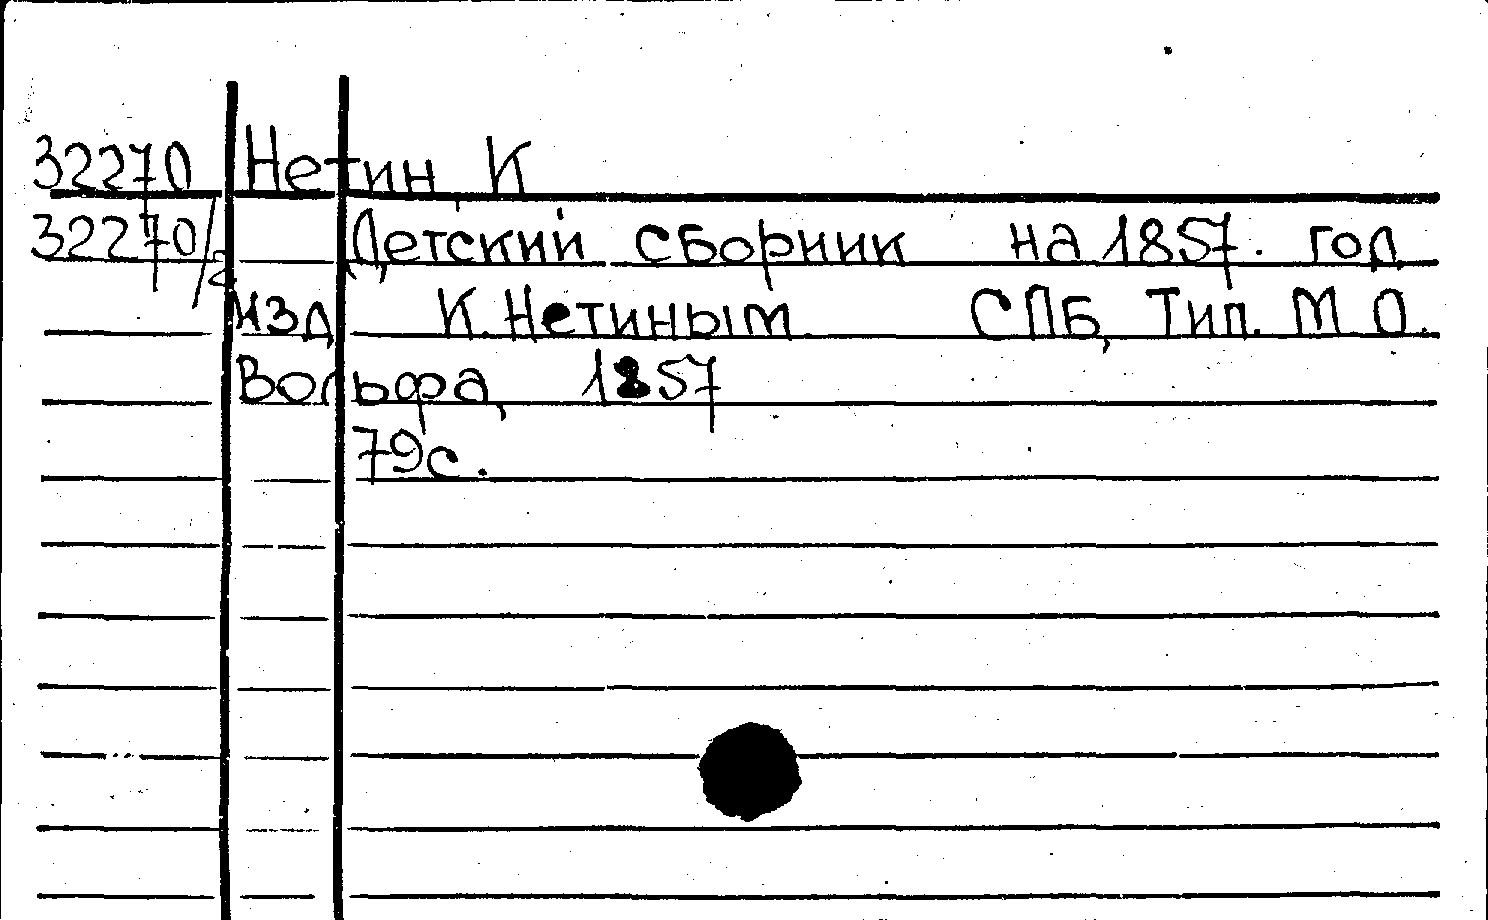 32270 Нетин К
32270/2 Детский сборник на 1857. год
изд К. Нетиным. СПБ, Тип. М О.
Вольфа, 1857
79с.